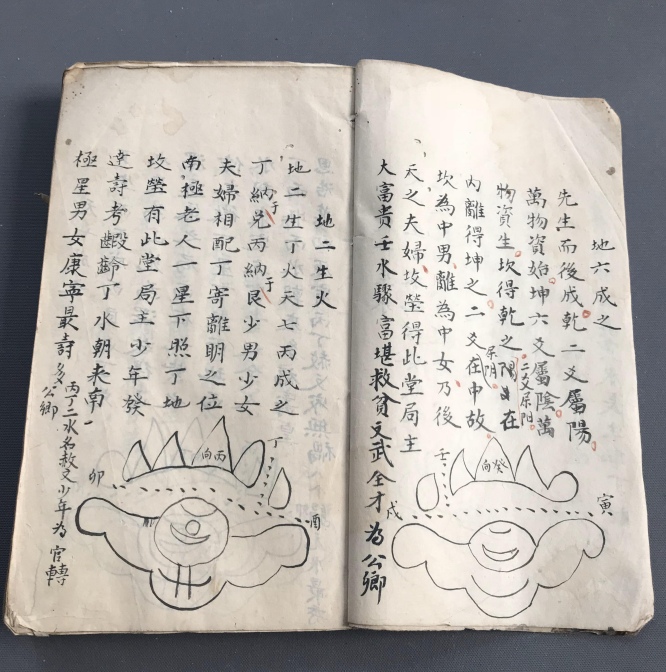 地六成之
先生而後成乾二爻屬陽
萬物資始坤六爻屬陰萬
物資生坎得乾之陽爻在
二爻屬陽
內離得坤之二爻在中故
屬陰
坎為中男離為中女乃後
天之夫婦坟塋得此堂局主
大富貴壬水驟富堪救貧文武全才為公卿
壬
癸向
寅
戌
地二生火
地二生丁火天七丙成之
丁納于兌丙納于艮少男少女
夫婦相配丁寄離明之位
南極老人一星下照丁地
坟塋有此堂局主少年發
達壽考齯齡丁水朝來南
極星男女康寧最壽多公卿
丙丁二水名赦文少年為官轉
丁
丙向
卯
酉